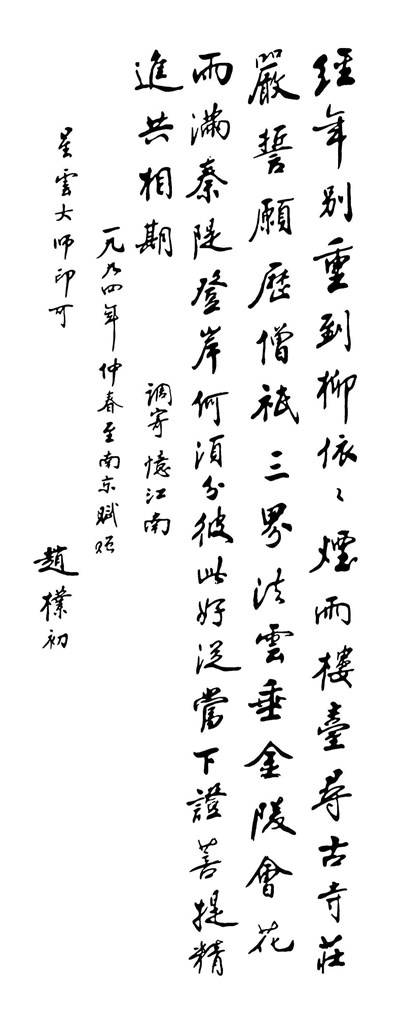 經年別重到柳依〻煙雨樓臺尋古寺莊
嚴誓願歷僧祇三界法雲垂金陵會花
雨滿秦隄登岸何須分彼此好從當下證菩提精
進共相期
調寄憶江南
一九九四年仲春至南京賦贈
星雲大師印可
趙樸初